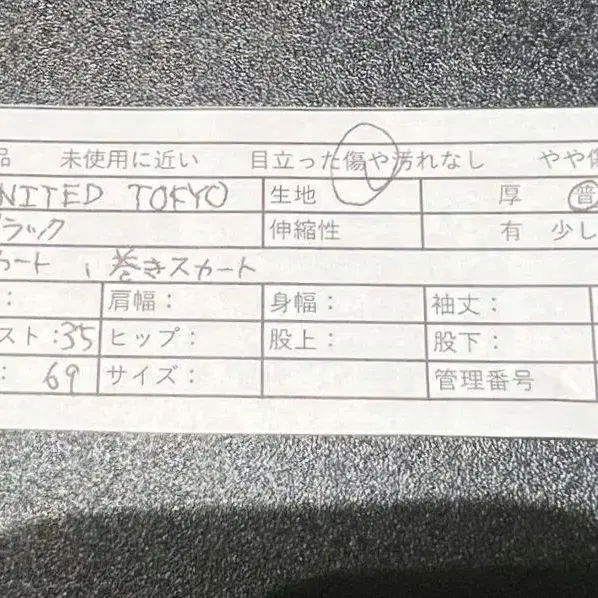 品 未使用に近い 目立った傷や汚れなし やや傷
NITED TOKYO 生地 厚 普
ラック 伸縮性 有 少し
カート、巻きスカート
： 肩幅： 身幅： 袖丈：
スト：35 ヒップ： 股上： 股下：
： 69 サイズ： 管理番号